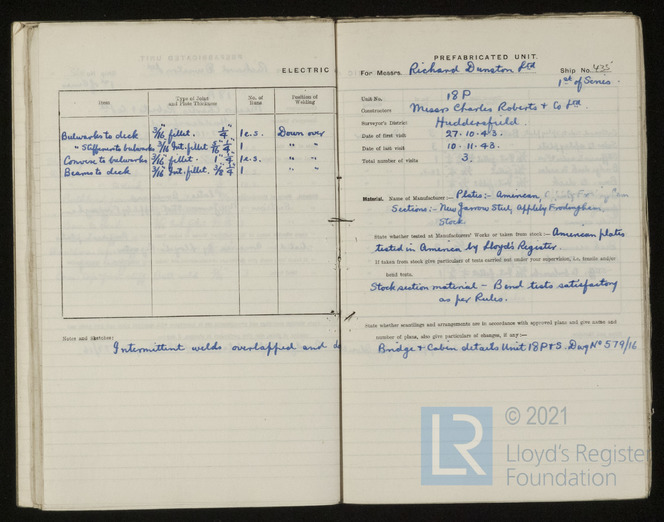 ELECTRIC
Item
Type of Joint and Plate Thickness
No. of Runs
Position of Welding
Bulwarks to deck 3/16" fillet. 1/4" 1 e.s. Down over
" Stiffener to bulwark 3/16" Int. fillet 5/16 1/4" 1 " "
Convexe to bulwarks 3/16" fillet. 1" 1/4" 1 e.s. " "
Beams to deck 3/16" Int. fillet. 3/8 1/4" 1 " "
Notes and Sketches:
Intermittent welds overlapped and
PREFABRICATED UNIT.
For Messrs. Richard Dunston Ltd Ship No. 435
1st of Series.
Unit No. 18 P
Constructors Messrs Charles Roberts & Co Ltd.
Surveyor's District Huddersfield.
Date of first visit 27. 10. 43.
Date of last visit 10. 11. 43.
Total number of visits 3.
Material. Name of Manufacturer :— Plates :- American,
Sections :- New Jarrow Steel, Appleby Frodingham
Stock.
State whether tested at Manufacturers' Works or taken from stock :— American plates
tested in America by Lloyd's Register.
If taken from stock give particulars of tests carried out under your supervision, i.e. tensile and/or
bend tests.
Stock section material - Bend tests satisfactory
as per Rules.
State whether scantlings and arrangements are in accordance with approved plans and give names and
number of plans, also give particulars of changes, if any :—
Bridge & Cabin details Unit 18 P & S. Drg No 579/16
LR
© 2021
Lloyd's Register
Foundation